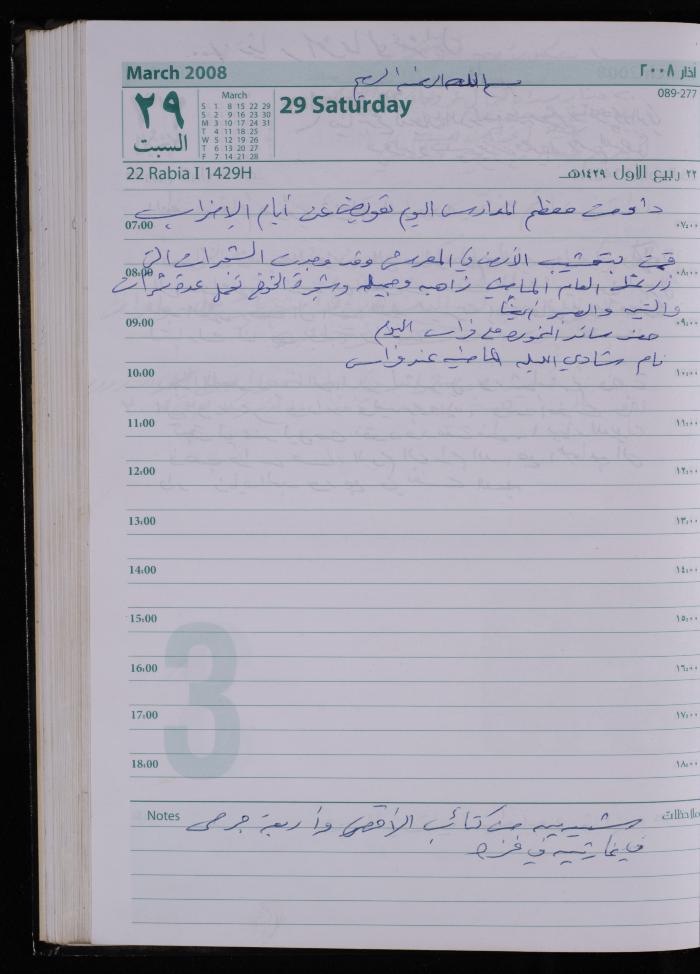 March 2008
اذار ٢٠٠٨
بسم الله الرحمن الرحيم
089-277
٢٩
السبت
March
S 1 8 15 22 29
S 2 9 16 23 30
M 3 10 17 24 31
T 4 11 18 25
W 5 12 19 26
T 6 13 20 27
F 7 14 21 28
29 Saturday
22 Rabia I 1429H
٢٢ ربيع الأول ١٤٢٩هـ
داومت معظم المدارس اليوم تعويضا عن أيام الإضراب
07:00 ٠٧:٠٠
قمت بتعشيب الأرض في المغرس وقد وجدت الشجرات التي
08:00 ٠٨:٠٠
زرعتها العام الماضي زاهية وجميلة وشجرة الخوخ تحمل عدة ثمرات
والتين والصبر أيضا
09:00 ٠٩:٠٠
اليوم
نام شادي الليلة الماضية عند فراس
10:00 ١٠:٠٠
11:00 ١١:٠٠
12:00 ١٢:٠٠
13:00 ١٣:٠٠
14:00 ١٤:٠٠
15:00 ١٥:٠٠
16:00 ١٦:٠٠
17:00 ١٧:٠٠
18:00 ١٨:٠٠
3
Notes ملاحظات
شهيدين من كتائب الأقصى وأربعة جرحى
في غارتين في غزة